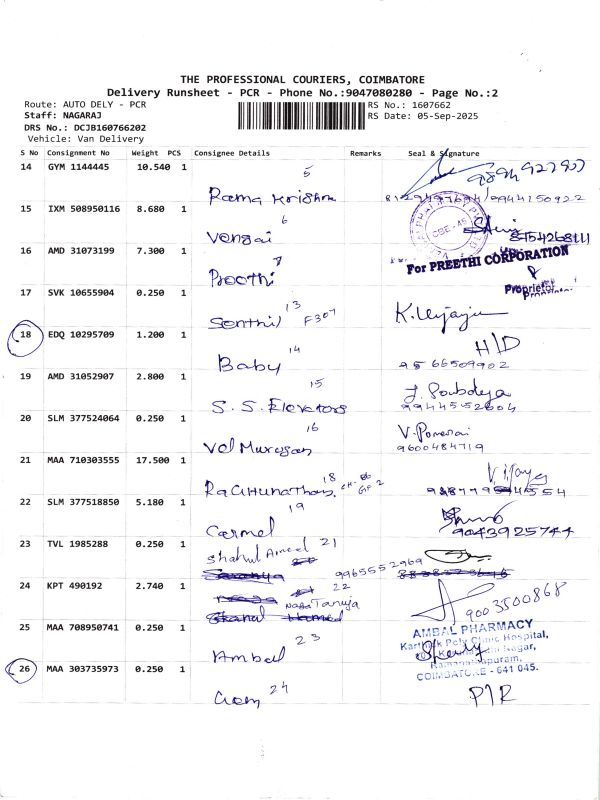 THE PROFESSIONAL COURIERS, COIMBATORE
Delivery Runsheet - PCR - Phone No.:9047080280 - Page No.:2
Route: AUTO DELY - PCR RS No.: 1607662
Staff: NAGARAJ RS Date: 05-Sep-2025
DRS No.: DCJB160766202
Vehicle: Van Delivery
S No Consignment No Weight PCS Consignee Details Remarks Seal & Signature
14 GYM 1144445 10.540 1 5
Rama Krishna
15 IXM 508950116 8.680 1 6
Vengai
16 AMD 31073199 7.300 1 7
Preethi For PREETHI CORPORATION
Proprietor
17 SVK 10655904 0.250 1 13
Senthil F307
18 EDQ 10295709 1.200 1 14 H/D
Baby 9566509902
19 AMD 31052907 2.800 1 15
S. S. Elevators 9944552604
20 SLM 377524064 0.250 1 16
Vel Murugan 9600484719
21 MAA 710303555 17.500 1 18 Vijaya
Raghunathan
22 SLM 377518850 5.180 1 19
Carmel 9043925744
23 TVL 1985288 0.250 1
Shahul Ameed 21
9965552969
24 KPT 490192 2.740 1 22
Tanuja 9003500868
25 MAA 708950741 0.250 1 23 AMBAL PHARMACY
Ambal Poly Clinic Hospital,
Nagar,
Ramanathapuram,
COIMBATORE - 641 045.
26 MAA 303735973 0.250 1 24
P/R